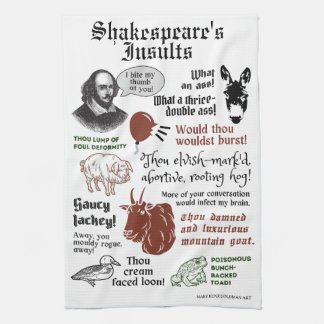 Shakespeare's
Insults
I bite my
thumb
at you!
What
an ass!
What a thrice-
double ass!
THOU LUMP OF
FOUL DEFORMITY
Would thou
wouldst burst!
Thou elvish-mark'd,
abortive, rooting hog!
More of your conversation
would infect my brain.
Saucy
lackey!
Away, you
mouldy rogue,
away!
Thou damned
and luxurious
mountain goat.
Thou
cream
faced loon!
POISONOUS
BUNCH-
BACKED
TOAD!